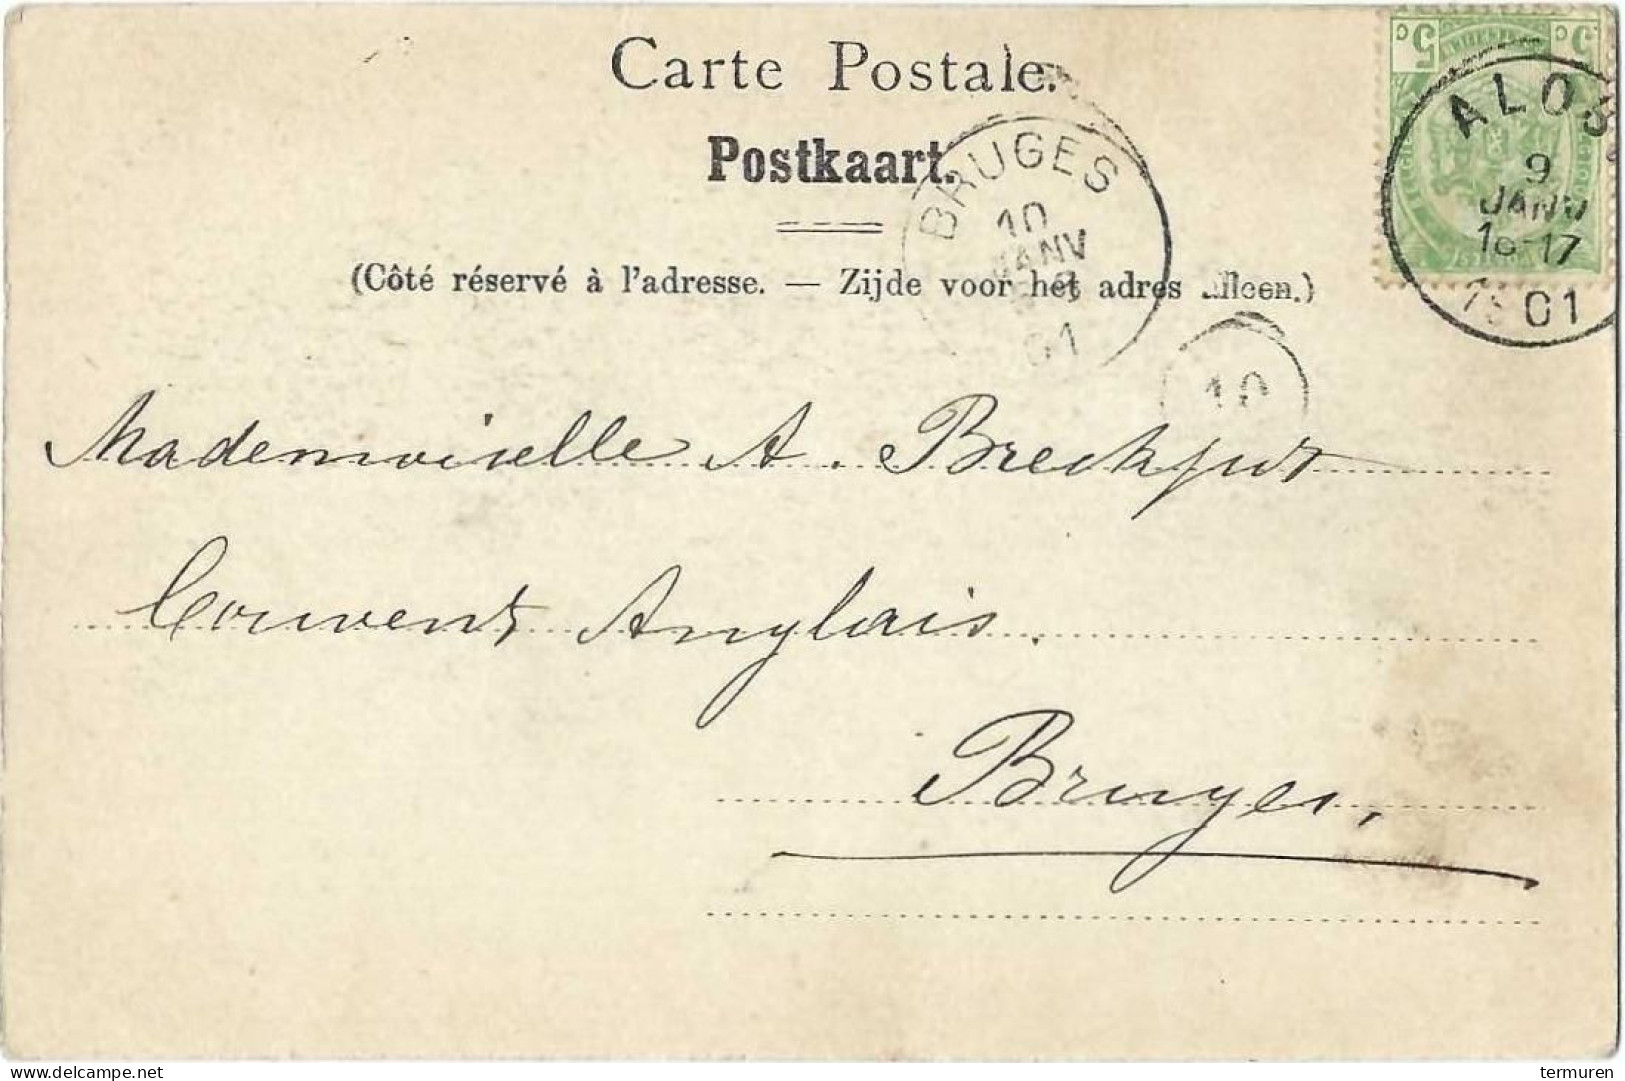 Carte Postale.
Postkaart.
(Côté réservé à l'adresse. — Zijde voor het adres alleen.)
5 c c 5
ALOS
9
JANV
16-17
1901
BRUGES
10
JANV
01
10
Mademoiselle A. Breckpot
Couvent Anglais.
Bruges,
termuren